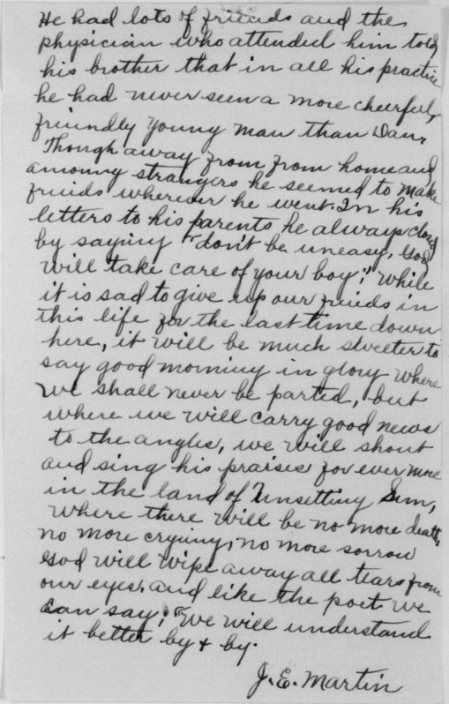 He had lots of friends and the
physician who attended him told
his brother that in all his practice
he had never seen a more cheerful,
friendly young man than Dan,
Though away from from home and
among strangers he seemed to make
friends wherever he went. In his
letters to his parents he always closed
by saying "don't be uneasy, God
will take care of your boy;" While
it is sad to give up our friends in
this life for the last time down
here, it will be much sweeter to
say good morning in glory where
we shall never be parted, but
where we will carry good news
to the angles, we will shout
and sing his praises for ever more
in the land of Unsetting Sun,
where there will be no more death,
no more crying, no more sorrow
God will wipe away all tears from
our eyes, and like the poet we
can say; "We will understand
it better by & by.
J. E. Martin